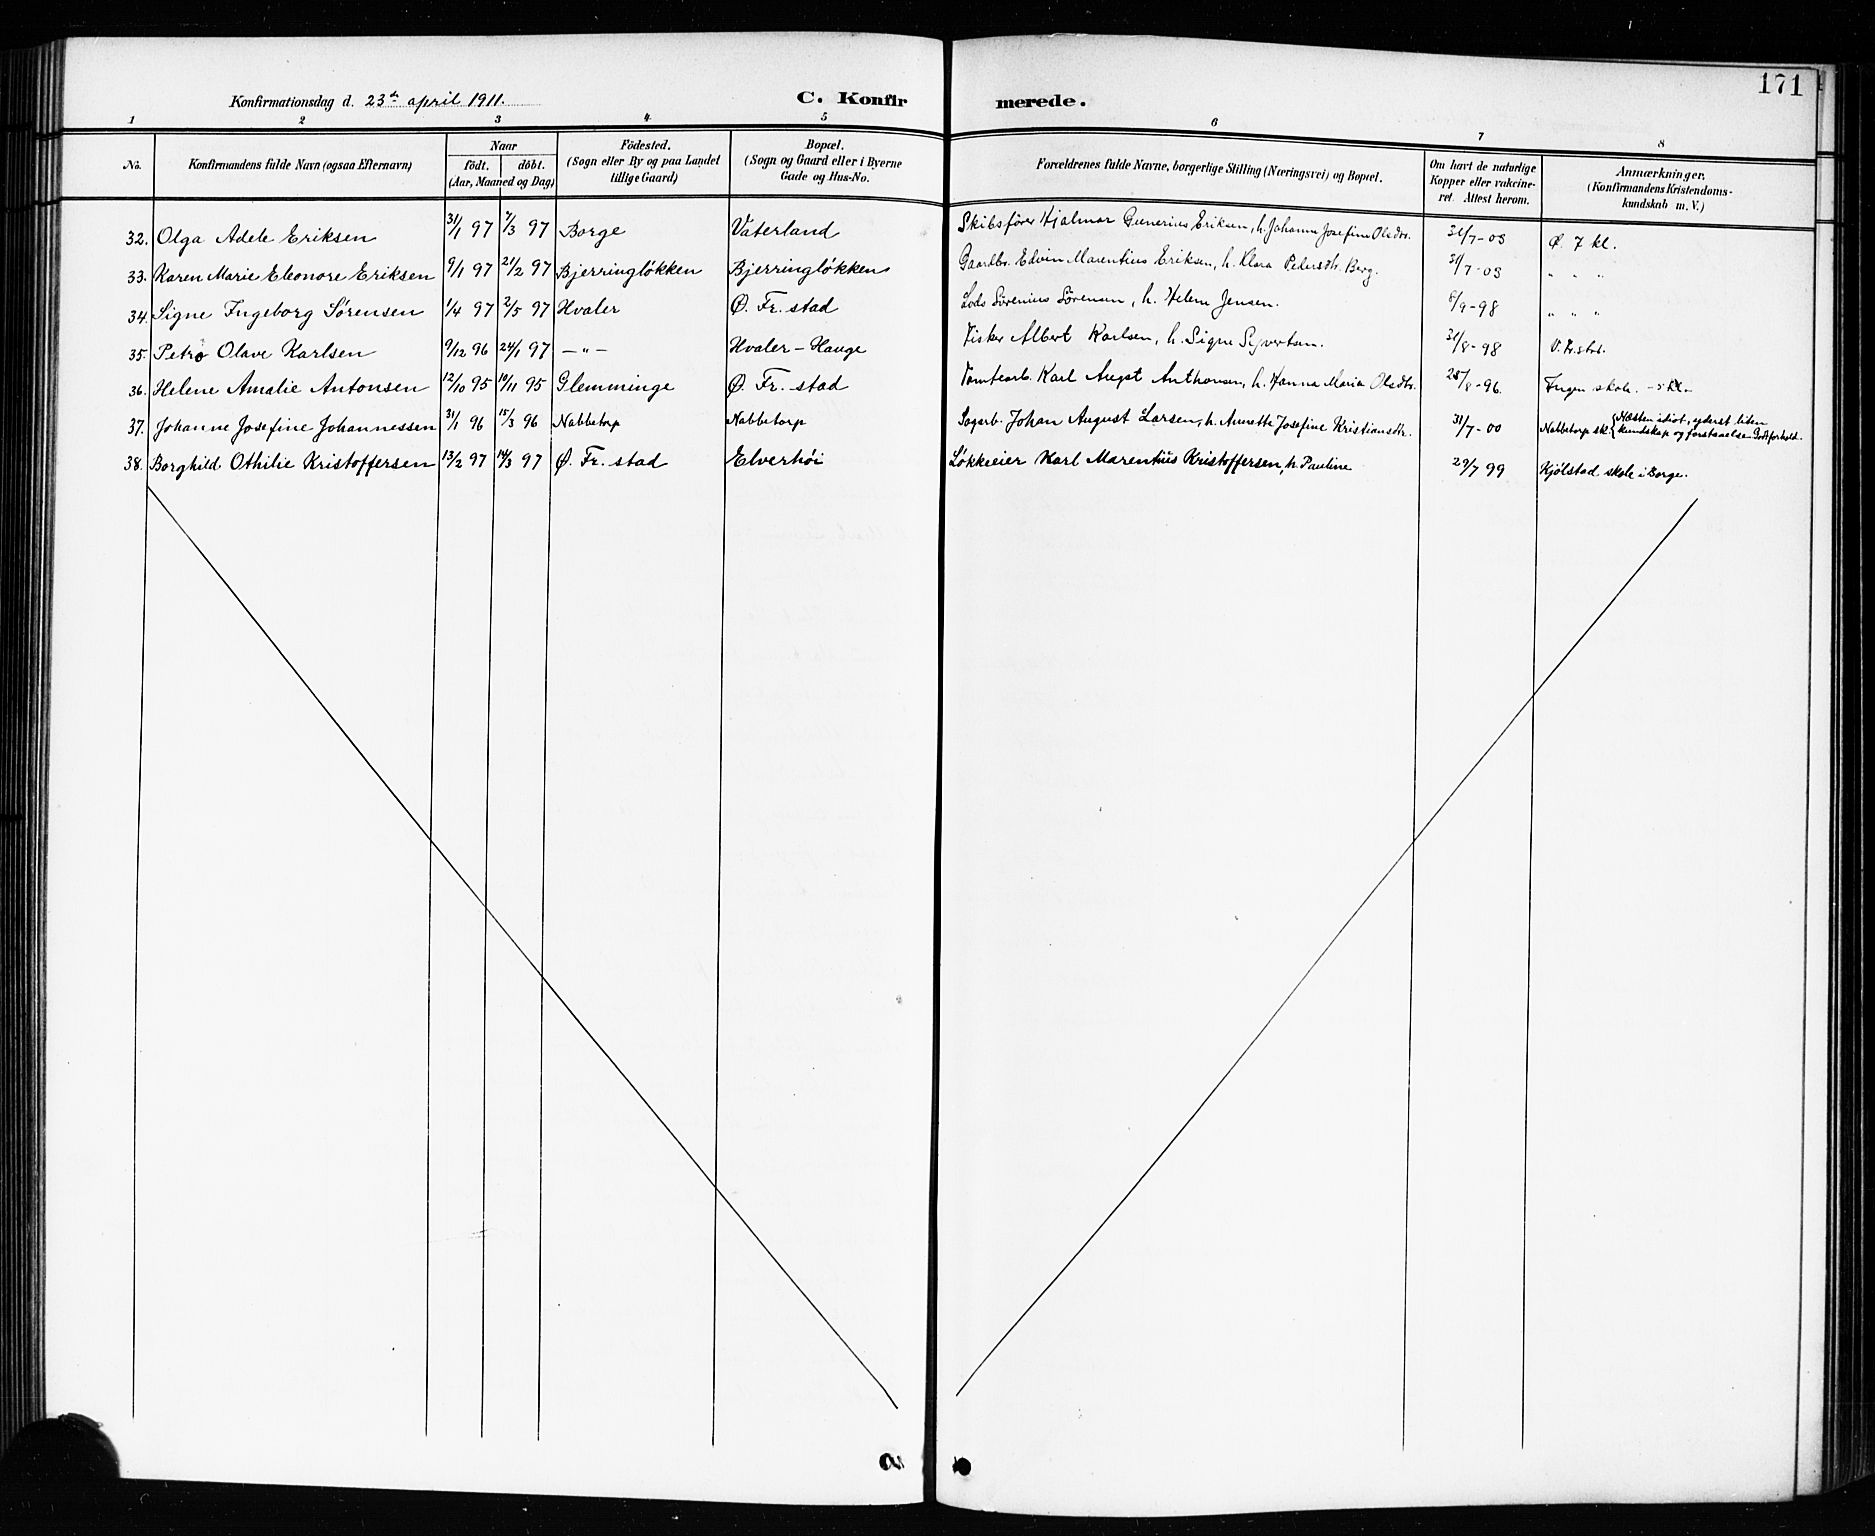 171
Konfirmationsdag d. 23de april 1911. C. Konfirmerede.
1 2 3 4 5 6 7 8
No. Konfirmandens fulde Navn (ogsaa Efternavn) Naar födt. döbt. (Aar, Maaned og Dag) Födested. (Sogn eller By og paa Landet tillige Gaard) Bopæl. (Sogn og Gaard eller i Byerne Gade og Hus-No. Forældrenes fulde Navne, borgerlige Stilling (Næringsvei) og Bopæl. Om havt de naturlige Kopper eller vakcineret. Attest herom. Anmærkninger. (Konfirmandens Kristendomskundskab m. V.)
32. Olga Adele Eriksen 31/1 97 7/3 97 Borge Vaterland Skibsfører Hjalmar Gunerius Eriksen, h. Johanne Josefine Olsdtr. 31/7-03 Ø. 7 kl.
33. Karen Marie Eleonore Eriksen 9/1 97 21/2 97 Bjerringløkken Bjerringløkken Gaardbr. Edvin Marentius Eriksen, h. Klara Pedersdtr. Berg. 31/7-03 " " "
34. Signe Ingeborg Sørensen 1/4 97 2/5 97 Hvaler Ø. Fr. stad Lods Sørenius Sørensen, h. Helene Jensen. 8/9-98 " " "
35. Petra Olave Karlsen 9/12 96 24/1 97 -"- Hvaler - Hauge Fisker Albert Karlsen, h. Signe Syvertsen. 31/8-98 V. Fr.std.
36. Helene Amalie Antonsen 12/10 95 10/11 95 Glemminge Ø. Fr. stad Tomtearb. Karl Augst Anthonsen, h. Hanna Maria Olsdtr. 25/8-96. Ingen skole. - 5 kl. -
37. Johanne Josefine Johannessen 31/1 96 15/3 96 Nabbetorp Nabbetorp Sagarb. Johan August Larsen, h. Annette Josefine Kristiansdtr. 31/7-00 Nabbetorp sk. {Næsten idiot, yderst liten kundskap og forstaaelse. Godt forhold.
38. Borghild Othilie Kristoffersen 13/2 97 14/3 97 Ø. Fr. stad Elverhöi Løkkeeier Karl Marentius Kristoffersen, h. Pauline 29/7 99 Kjølstad skole i Borge.